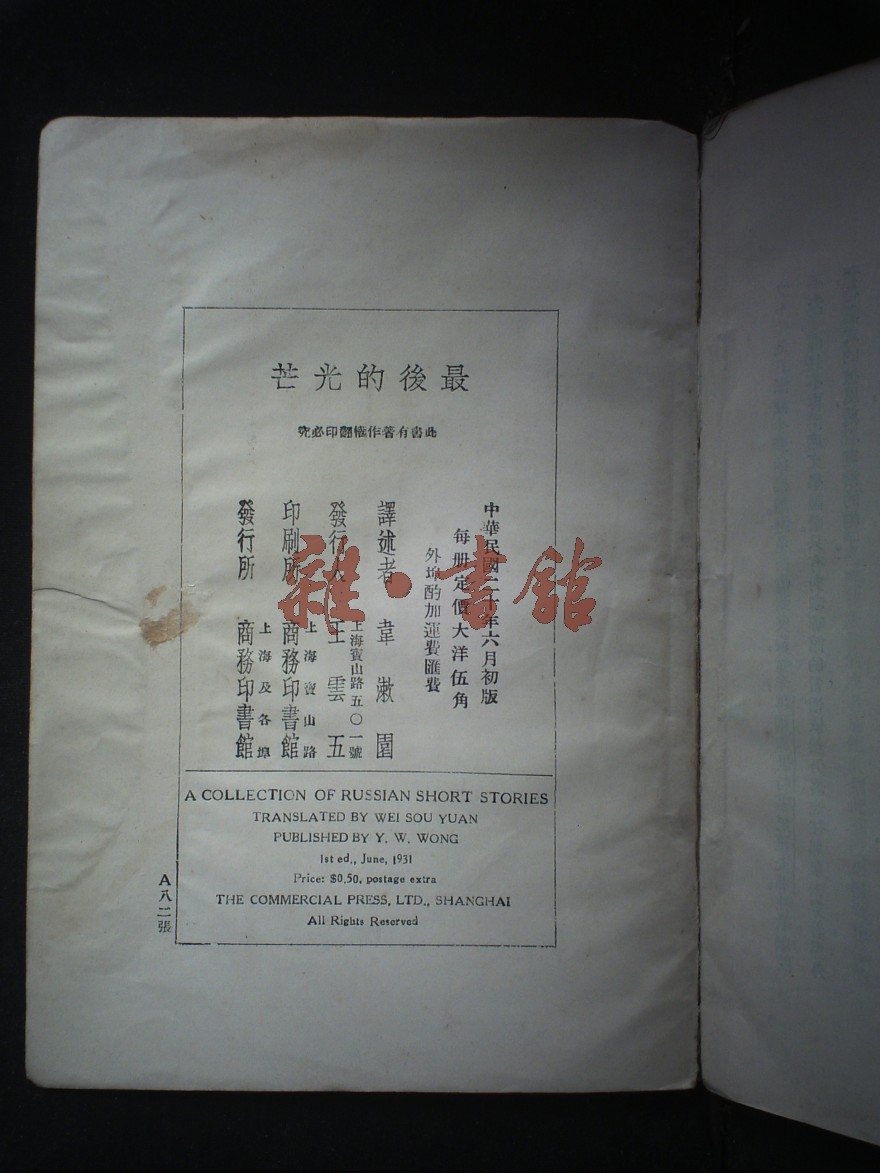 最後的光芒
此書有著作權翻印必究
中華民國二十年六月初版
每册定價大洋伍角
外埠酌加運費匯費
譯述者 韋漱園
發行人 王雲五
上海寶山路五〇一號
印刷所 商務印書館
上海寶山路
發行所 商務印書館
上海及各埠
雜·書館
A COLLECTION OF RUSSIAN SHORT STORIES
TRANSLATED BY WEI SOU YUAN
PUBLISHED BY Y. W. WONG
1st ed., June, 1931
Price: $0.50, postage extra
THE COMMERCIAL PRESS, LTD., SHANGHAI
All Rights Reserved
A八二張